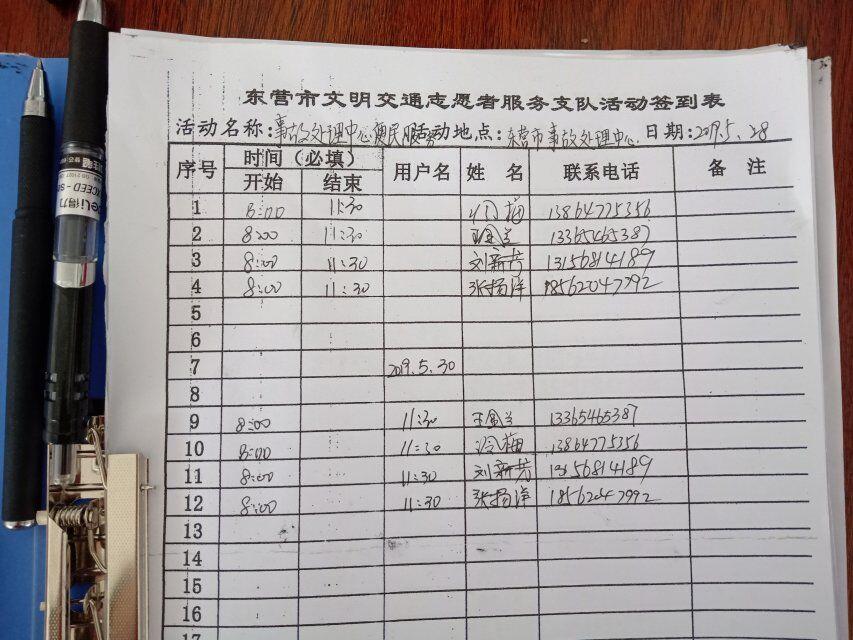 东营市文明交通志愿者服务支队活动签到表
活动名称:事故处理中心便民服务 活动地点:东营市事故处理中心 日期:2019.5.28
序号 时间（必填） 用户名 姓 名 联系电话 备 注
开始 结束
1 8:00 11:30 冷梅 13864775356
2 8:00 11:30 王金兰 13365465387
3 8:00 11:30 刘新芳 13156814189
4 8:00 11:30 张扬洋 18562047992
5
6
7 2019.5.30
8
9 8:00 11:30 王金兰 13365465387
10 8:00 11:30 冷梅 13864775356
11 8:00 11:30 刘新芳 13156814189
12 8:00 11:30 张扬洋 18562047992
13
14
15
16
17
得力